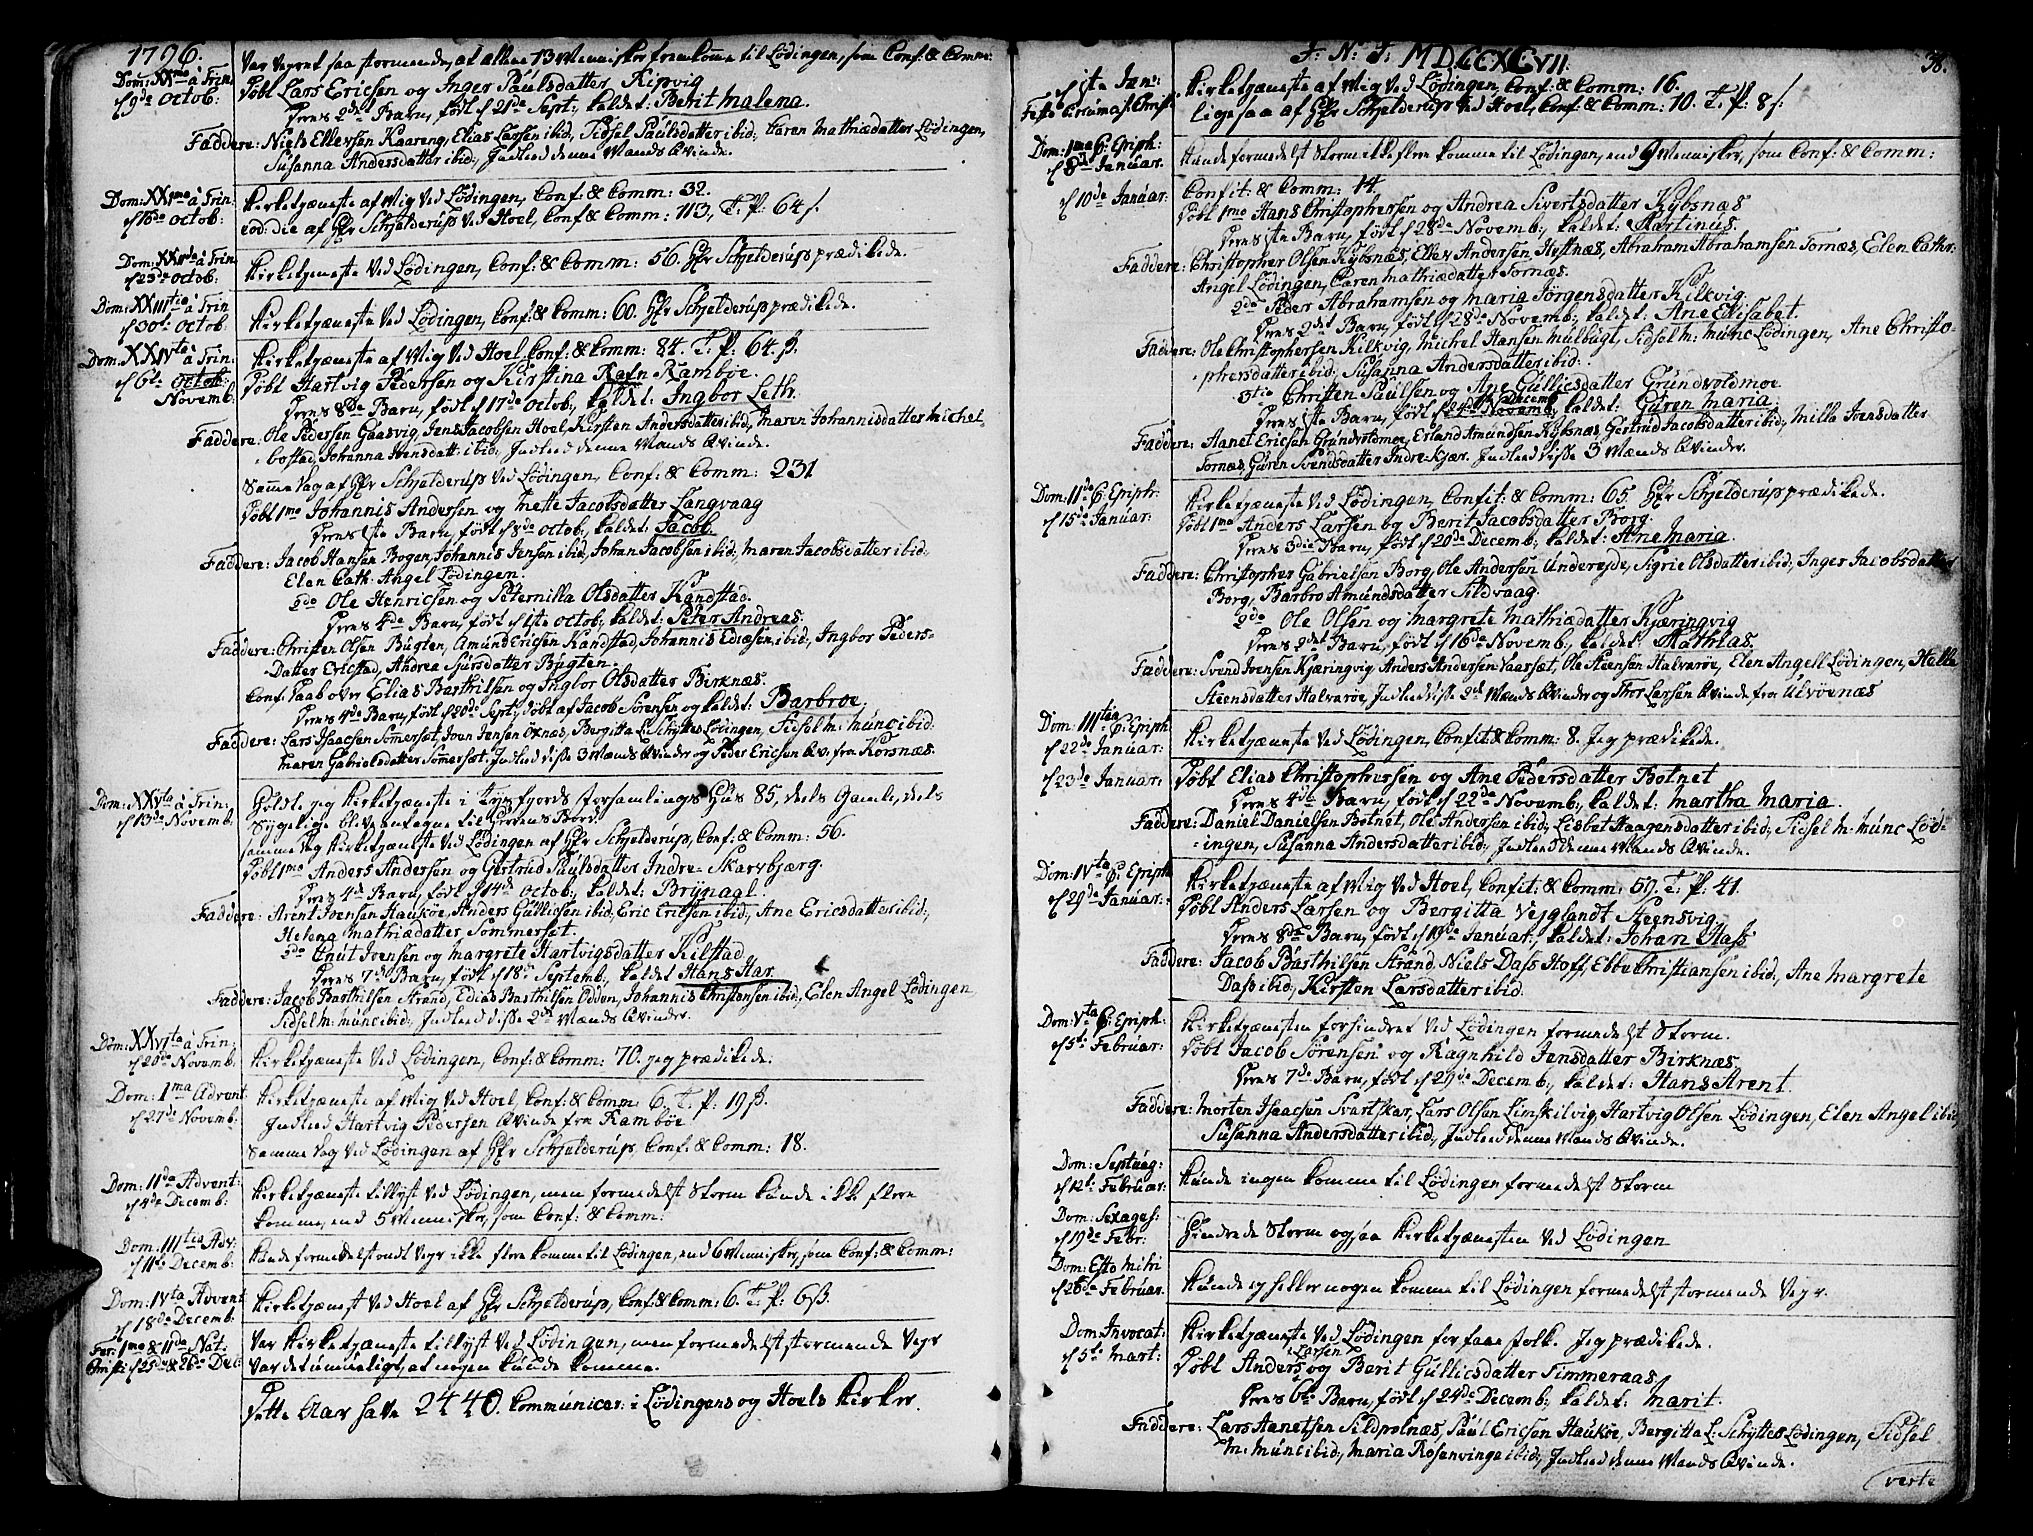 1796.
Dom: XXmo à Trin:
d 9de Octob:
Var Veyret saa stormende, at alene 13 Mennisker fremkomme til Lødingen, som Conf: & Comm:
Døbt Lars Ericsen og Inger Paulsdatter Ripvig
Deres 2det Barn, født d 21de Sept:, kaldet: Berit Malena.
Faddere: Niels Ellevsen Kaareng, Elias Larsen ibid:, Sidsel Paulsdatter ibid:, Caren Mathiædatter Lødingen,
Susanna Andersdatter ibid:, Indleed denne Mands Qvinde.
Dom: XXImo à Trin:
d 16de Octob:
Kirketjæneste af Mig ved Lødingen, Conf: & Comm: 32.
eod: die af Hr Schjelderup ved Hoel, Conf: & Comm: 113, T. P: 64 s.
Dom: XXIIda à Trin:
d 23de Octob:
Kirketjeneste ved Lødingen, Conf: & Comm: 56. Hr Schjelderup prædikede.
Dom: XXIIItia à Trin
d 30te Octob:
Kirketjæneste ved Lødingen, Conf: & Comm: 60. Hr Schjelderup prædikede.
Dom: XXIVta à Trin:
d 6te Octob:
Novemb:
Kirketjæneste af Mig ved Hoel, Conf: & Comm: 84. T. P: 64 s.
Døbt Hartvig Pedersen og Kirstina Ravn Ramboe.
Deres 8de Barn, født d 17de Octob:, kaldet: Ingbor Leth.
Faddere: Ole Pedersen Gaasvig, Jens Jacobsen Hoel, Kirsten Andersdatter ibid:, Maren Johannisdatter Michel-
bostad, Johanna Hensdatt: ibid:, Indleed denne Mands Qvinde.
Samme Dag af Hr Schjelderup ved Lødingen, Conf: & Comm: 231
Døbt 1mo Johannis Andersen og Mette Jacobsdatter Langvaag
Deres 1ste Barn, født d 8de Octob:, kaldet: Jacob.
Faddere: Jacob Hansen Bogen, Johannis Jensen ibid:, Johan Jacobsen ibid:, Maren Jacobsdatter ibid:,
Elen Cath: Angel Lødingen.
2do Ole Henricsen og Peternilla Olsdatter Kandstad.
Deres 4de Barn, født d 1ste Octob:, kaldet: Peter Andreas.
Faddere: Christen Olsen Bugten, Amund Ericsen Kandstad, Johannis Ediæsen ibid:, Ingbor Peders-
Datter Ericstad, Andrea Sjursdatter Bugten.
Conf: Daab over Elias Barthilsen og Ingbor Olsdatter Birknæs.
Deres 4de Barn, født d 20de Sept:, døbt af Jacob Sørensen og kaldet: Barbroe.
Faddere: Lars Isaacsen Sommerset, Iven Jensen Oxnæs, Bergitta L: Schyttes Lødingen, Sidsel M: Munc ibid:
Maren Gabrielsdatter Somerset. Indleed disse 3 Mænds Qvinder og Peder Ericsen Qv: fra Korsnæs.
Dom: XXVta à Trin:
d 13de Novemb:
Holdte jeg Kirketjæneste i Tysfjords Forsamlings Huus 85, deels Gamle, deels
Sygelige bleve antagne til Herrens Bord.
Samme Dag Kirketjæneste ved Lødingen af Hr Schjelderup, Conf: & Comm: 56.
Døbt 1mo Anders Andersen og Gertrud Paulsdatter Indre Skarvbjærg.
Deres 4de Barn, født d 14de Octob:, kaldet: Brynael.
Faddere: Arent Joensen Haukøe, Anders Gullicsen ibid:, Eric Ericsen ibid:, Ane Ericsdatter ibid:,
Helena Mathiædatter Sommerset.
2do Cnut Joensen og Margrete Hartvigsdatter Kilstad
Deres 7de Barn, født d 18de Septemb:, kaldet Hans Har.
Faddere: Jacob Barthilsen Strand, Edias Barthilsen Odden, Johannis Christansen ibid:, Elen Angel Lødingen,
Sidsel M: Munc ibid:, Indleed disse 2de Mænds Qvinder.
Dom: XXVIta à Trin:
d 20de Novemb:
Kirketjæneste ved Lødingen, Conf: & Comm: 70. jeg prædikede.
Dom: 1ma Advent
d 27de Novemb:
Kirketjæneste af Mig ved Hoel, Conf: & Comm: 6. T. P: 19 s.
Indleed Hartvig Pedersen Qvinde fra Rambøe
Samme Dag ved Lødingen af Hr Schjelderup, Conf: & Comm: 18.
Dom: IIda Advent:
d 4de Decemb:
Kirketjæneste tillyst ved Lødingen, men formedelst Storm kunde ikke flere
komme, end 5 Mennisker, som Conf: & Comm:
Dom: IIItia Adv:
d 11te Decemb:
Kunde formedelst ondt Veyr ikke flere komme til Lødingen, end 6 Mennisker, som Conf: & Comm:
Dom: IVta Advent
d 18de Decemb:
Kirketjænest ved Hoel af Hr Schjelderup, Conf: & Comm: 6. T. P: 6 s.
Fer: 1ma & IIda Nat:
Christi d 25de & 26de Dec:
Var Kirketjæneste tillyst ved Lødingen, men formedelst stormende Veyr
var det umueligt, at nogen kunde komme.
Dette Aar have 2440. Communicer: i Lødingens og Hoels Kirker.
J: N: J: MDCCXCVII.
38.
d 1ste Jan:
Festo Circumcis: Christi
Kirketjæneste af Mig ved Lødingen, Conf: & Comm: 16.
ligesaa af Hr Schjelderup ved Hoel, Conf: & Comm: 10. T. P: 8 s.
Dom: 1ma p: Epiph:
d 8de Januar:
Kunde formedelst Storm ikke flere komme til Lødingen, end 9 Mennisker, som Conf: & Comm:
d 10de Januar:
Confit: & Comm: 14.
Døbt 1mo Hans Christophersen og Andrea Sivertsdatter Kybsnæs
Deres 1ste Barn, født d 28de Novemb:, kaldet: Martinus.
Faddere: Christopher Olsen Kybsnæs, Eller Andersen Hysnæs, Abraham Abrahamsen Tornæs, Elen Cathr:
Angel Lødingen, Caren Mathiædatter Tornæs.
2do Peder Abrahamsen og Maria Jørgensdatter Kilkvig
Deres 2det Barn, født d 28de Novemb:, kaldet: Ane Elisabet.
Faddere: Ole Christophersen Kilkvig, Michel Hansen Mulbugt, Sidsel M: Munc Lødingen, Ane Christo-
phersdatter ibid:, Susanna Andersdatter ibid:
3tio Christen Paulsen og Ane Gullicsdatter Grundvoldmoe
Deres 1ste Barn, født d 24de Novemb: Decemb:, kaldet: Guren Maria.
Faddere: Aanet Ericsen Grundvoldmoe, Erland Amundsen Kybsnæs, Gertrud Jacobsdatter ibid:, Milla Ivensdatter
Tornæs, Guren Svendsdatter Indre-Kjær. Indleed disse 3 Mænds Qvinder.
Dom: IIda p: Epiphr:
d 15de Januar:
Kirketjæneste ved Lødingen, Confit: & Comm: 65. Hr Schjelderup prædikede.
Døbt 1mo Anders Larsen og Berit Jacobsdatter Borg.
Deres 3die Barn, født d 20de Decemb:, kaldet: Ane Maria.
Faddere: Christopher Gabrielsen Borg, Ole Andersen Undereyde, Sigrie Olsdatter ibid:, Inger Jacobsdatter
Borg, Barbro Amundsdatter Sildvaag.
2do Ole Olsen og Margrete Mathiædatter Kjæringvig
Deres 2det Barn, født d 16de Novemb:, kaldet: Mathias.
Faddere: Svend Ivensen Kjæringvig, Anders Andersen Vaarsæt, Ole Steensen Halvarøe, Elen Angell Lødingen, Halla
Steensdatter Halvarøe, Indleed disse 2de Mænds Qvinder og Thor Larsen Qvinde fra Ulvöenæs
Dom: IIItia p: Epiph
d 22de Januar:
Kirketjæneste ved Lødingen, Confit & Comm: 8. Jeg prædikede.
d 23de Januar:
Døbt Elias Christophersen og Ane Pedersdatter Botnet
Deres 4de Barn, født d 22de Novemb:, kaldet: Martha Maria.
Faddere: Daniel Danielsen Botnet, Ole Andersen ibid:, Lisbet Haagensdatter ibid:, Sidsel M: Munc Lød-
ingen, Susanna Andersdatter ibid:, Indleed denne Mands Qvinde.
Dom: IVta p: Epiph
d 29de Januar:
Kirketjæneste af Mig ved Hoel, Confit: & Comm: 59. T. P: 41.
Døbt Anders Larsen og Bergitta Vejglandt Steensvig
Deres 8de Barn, født d 19de Januar:, kaldet: Johan Dass
Faddere: Jacob Barthilsen Strand, Niels Dass Hoff, Ebbe Christiansen ibid:, Ane Margrete
Dass ibid:, Kirsten Larsdatter ibid:
Dom: Vta p: Epiph:
d 5te Februar:
Kirketjæneste forhindret ved Lødingen formedelst Storm.
Døbt Jacob Sørensen og Ragnhild Jensdatter Birknæs
Deres 7de Barn, født d 29de Decemb:, kaldet: Hans Arent.
Faddere: Morten Isaacsen Svartskar, Lars Olsen Limskilvig, Hartvig Olsen Lødingen, Elen Angel ibid
Susanna Andersdatter ibid:, Indleed denne Mands Qvinde.
Dom: Septuag:
d 12te Februar:
Kunde ingen komme til Lødingen formedelst Storm
Dom: Sexages:
d 19de Febr:
Hindrede Storm ogsaa Kirketjænesten ved Lødingen
Dom: Esto Mihi
d 26de Februar.
Kunde ey heller nogen komme til Lødingen formedelst stormende Veyr.
Dom: Invocat:
d 5te Mart:
Kirketjæneste ved Lødingen for faae Folk. Jeg prædikede.
Døbt Anders Larsen og Berit Gullicsdatter Timmeraas
Deres 6te Barn, født d 24de Decemb:, kaldet: Marit.
Faddere: Lars Aanetsen Sildpolnæs, Paul Ericsen Haukøe, Bergitta L: Schyttes Lødingen, Sidsel
M: Munc ibid:, Maria Rosenvinge ibid:, Indleed denne Mands Qvinde.
verte